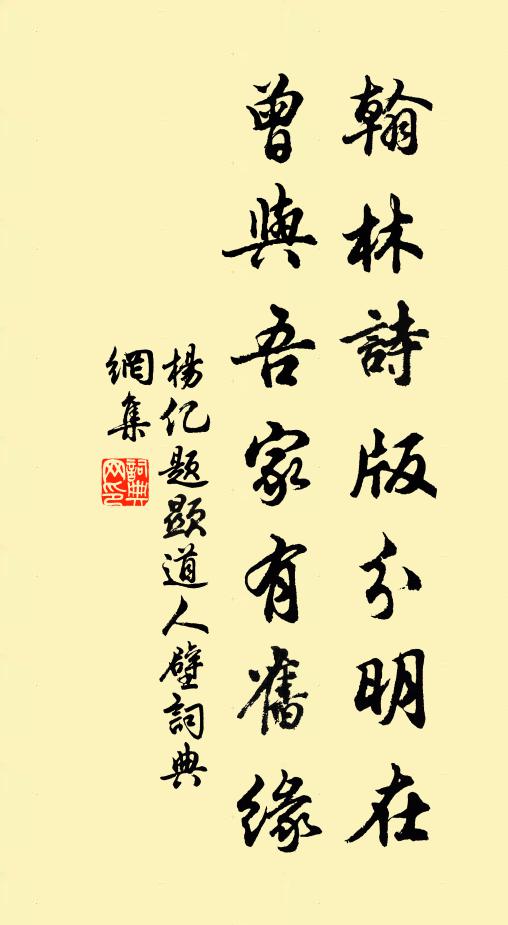 翰林詩版分明在
曾與吾家有舊緣
楊亿題顯道人壁詞典
網集
詞典網印